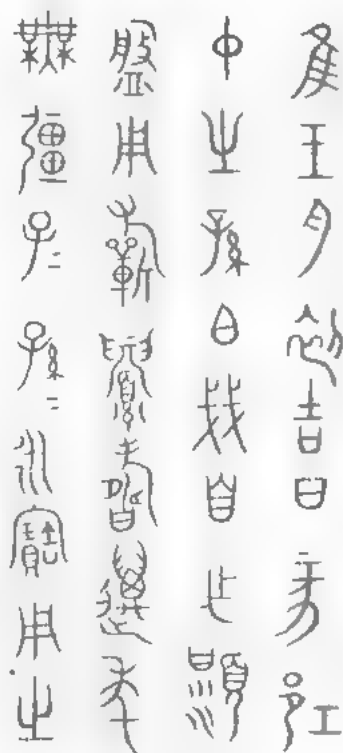 隹王月初吉丁亥邛
中之孫白戔自乍顮
盤用祈眉壽萬年
無疆子=孫=永寶用之